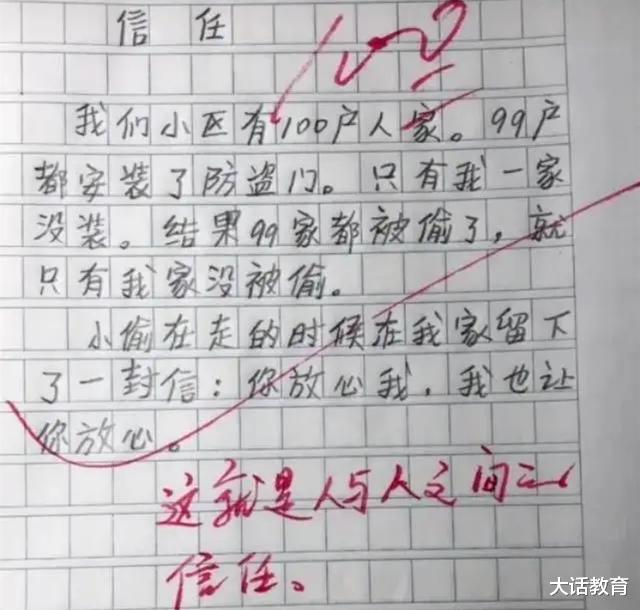 信任
100
我们小区有100户人家。99户
都安装了防盗门。只有我一家
没装。结果99家都被偷了，就
只有我家没被偷。
小偷在走的时候在我家留下
了一封信：你放心我，我也让
你放心。
这就是人与人之间之
信任。
大话教育